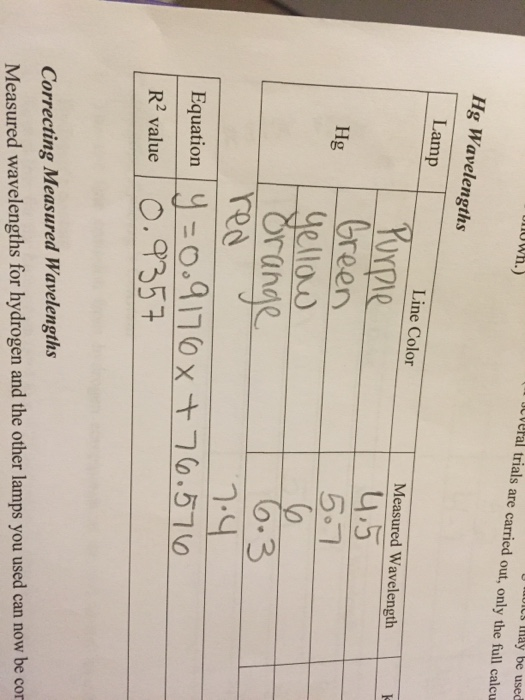 several trials are carried out, only the full
may be
Hg Wavelengths
Lamp Line Color Measured Wavelength
Hg Purple 4.5
Green 5.7
yellow 6
Orange 6.3
red 7.4
Equation y = 0.9176x + 76.576
R² value 0.9357
Correcting Measured Wavelengths
Measured wavelengths for hydrogen and the other lamps you used can now be